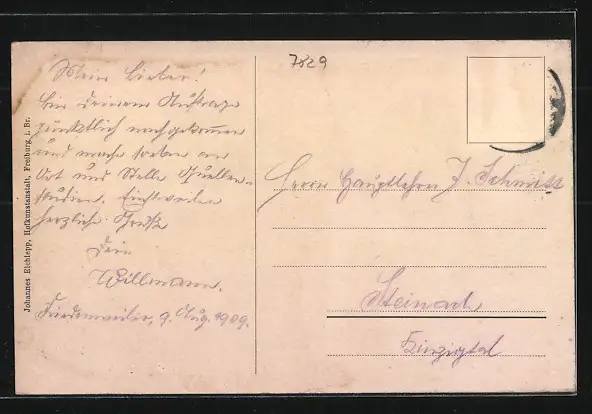 7829
Mein Lieber!
Bin Deinem Auftrage
pünktlich nachgekommen
und mache soeben an
Ort und Stelle Quellen-
studien. Einstweilen
herzliche Grüße
Dein
Willmann.
Friedenweiler, 9. Aug. 1909.
Herrn Hauptlehrer J. Schmitt
Steinach
Kinzigtal
Johannes Elchlepp, Hofkunstanstalt, Freiburg i. Br.